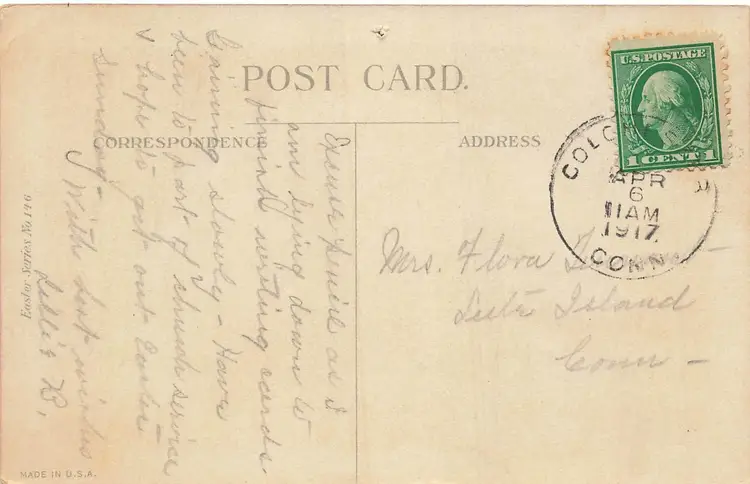 POST CARD.
CORRESPONDENCE
ADDRESS
U.S. POSTAGE
1 CENT 1
COLC R
APR
6
11AM
1917
CONN
Mrs. Flora
Island
Conn –
Excuse pencil as I
am lying down to
finish writing cards
Gaining slowly – Have
been to part of church service
& hope to get out Easter
Sunday –
With best wishes
Libbie B,
Easter Series No. 100
MADE IN U.S.A.